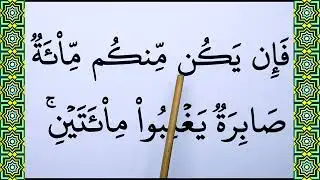 فَإِن يَكُن مِّنكُم مِّاْئَةٞ
صَابِرَةٞ يَغۡلِبُواْ مِاْئَتَيۡنِۚ